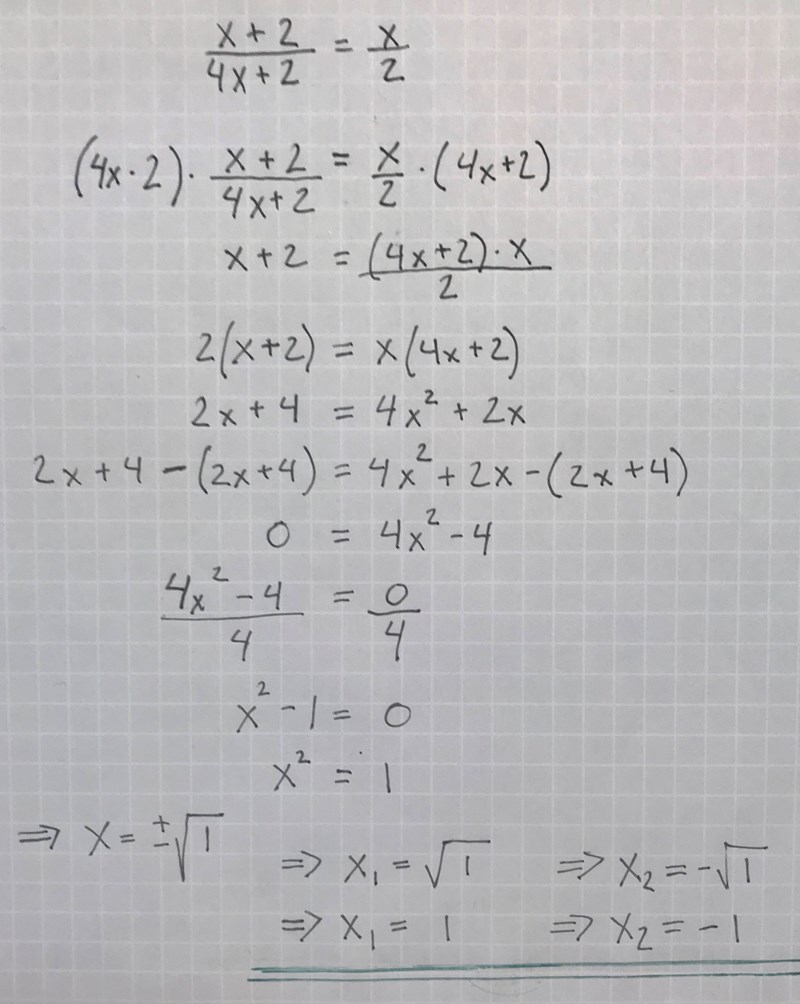 (x + 2)/(4x + 2) = x/2
(4x · 2) · (x + 2)/(4x + 2) = x/2 · (4x + 2)
x + 2 = ((4x + 2) · x)/2
2(x + 2) = x(4x + 2)
2x + 4 = 4x² + 2x
2x + 4 − (2x + 4) = 4x² + 2x − (2x + 4)
0 = 4x² − 4
(4x² − 4)/4 = 0/4
x² − 1 = 0
x² = 1
⇒ x = ±√1
⇒ x₁ = √1 ⇒ x₂ = −√1
⇒ x₁ = 1 ⇒ x₂ = −1